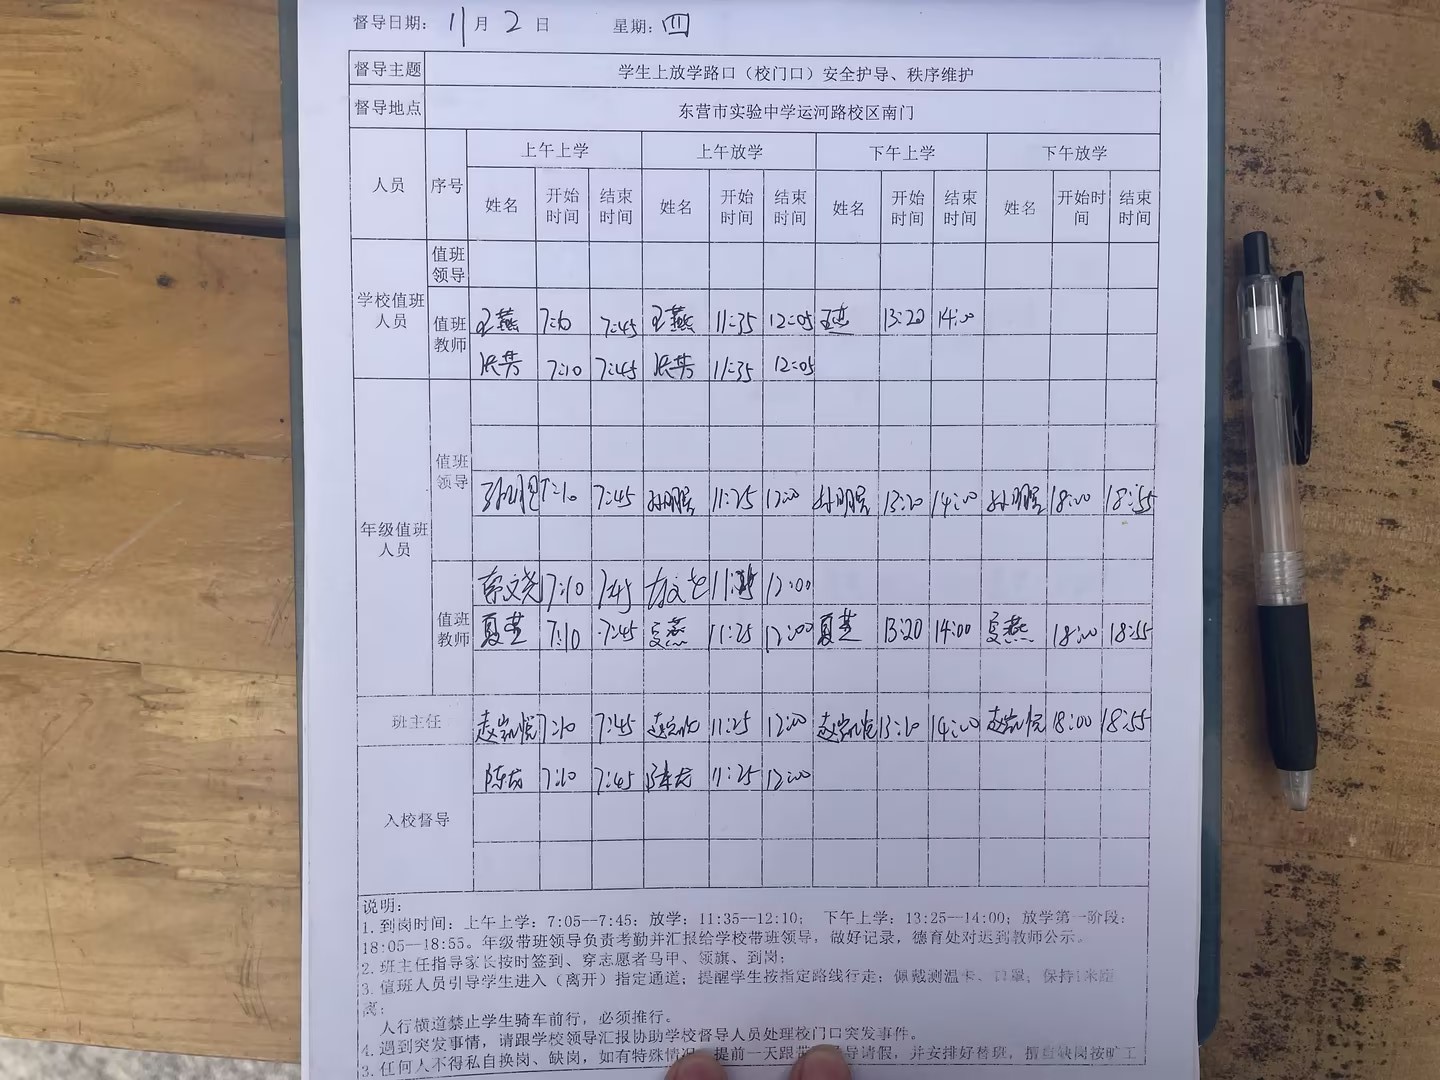 督导日期: 11月2日 星期: 四
督导主题 学生上放学路口（校门口）安全护导、秩序维护
督导地点 东营市实验中学运河路校区南门
人员 序号 上午上学 上午放学 下午上学 下午放学
姓名 开始时间 结束时间 姓名 开始时间 结束时间 姓名 开始时间 结束时间 姓名 开始时间 结束时间
学校值班人员 值班领导
值班教师 王燕 7:10 7:45 王燕 11:35 12:05 王燕 13:20 14:00
洪芳 7:10 7:45 洪芳 11:35 12:05
年级值班人员 值班领导
7:10 7:45 11:25 12:00 13:20 14:00 18:00 18:55
值班教师 7:10 7:45 12:00
夏燕 7:10 7:45 夏燕 11:25 12:00 夏燕 13:20 14:00 夏燕 18:00 18:55
班主任 赵凯悦 7:10 7:45 赵凯悦 11:25 12:00 赵凯悦 14:00 赵凯悦 18:00 18:55
入校督导 7:10 7:45 11:25 12:00
说明:
1. 到岗时间: 上午上学: 7:05--7:45; 放学: 11:35--12:10; 下午上学: 13:25--14:00; 放学第一阶段:
18:05--18:55。年级带班领导负责考勤并汇报给学校带班领导，做好记录，德育处对迟到教师公示。
2. 班主任指导家长按时签到、穿志愿者马甲、领旗、到岗;
3. 值班人员引导学生进入（离开）指定通道; 提醒学生按指定路线行走; 佩戴测温卡、口罩，保持1米距
离;
人行横道禁止学生骑车前行，必须推行。
4. 遇到突发事情，请跟学校领导汇报协助学校督导人员处理校门口突发事件。
3. 任何人不得私自换岗、缺岗，如有特殊情况 提前一天跟带 导请假，并安排好替班，擅自缺岗按旷工